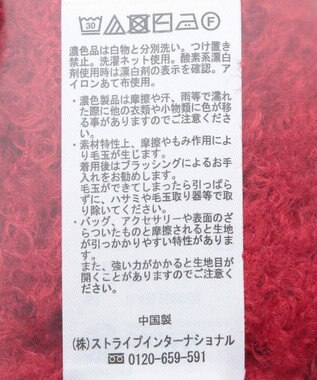 30 P F
濃色品は白物と分別洗い。つけ置き
禁止。洗濯ネット使用。酸素系漂白
剤使用時は漂白剤の表示を確認。ア
イロンあて布使用。
・濃色製品は摩擦や汗、雨等で濡れ
た際に他の衣類や小物類に色が移
る事がありますのでご注意くださ
い。
・素材特性上、摩擦やもみ作用によ
り毛玉が生じます。
着用後はブラッシングによるお手
入れをお勧めします。
毛玉ができてしまったら引っぱら
ずに、ハサミや毛玉取り器等で取
り除いてください。
・バッグ、アクセサリーや表面のざ
らついたものと摩擦されると生地
が引っかかりやすい特性がありま
す。
また、強い力がかかると生地目が
開くことがありますのでご注意く
ださい。
中国製
(株)ストライプインターナショナル
0120-659-591